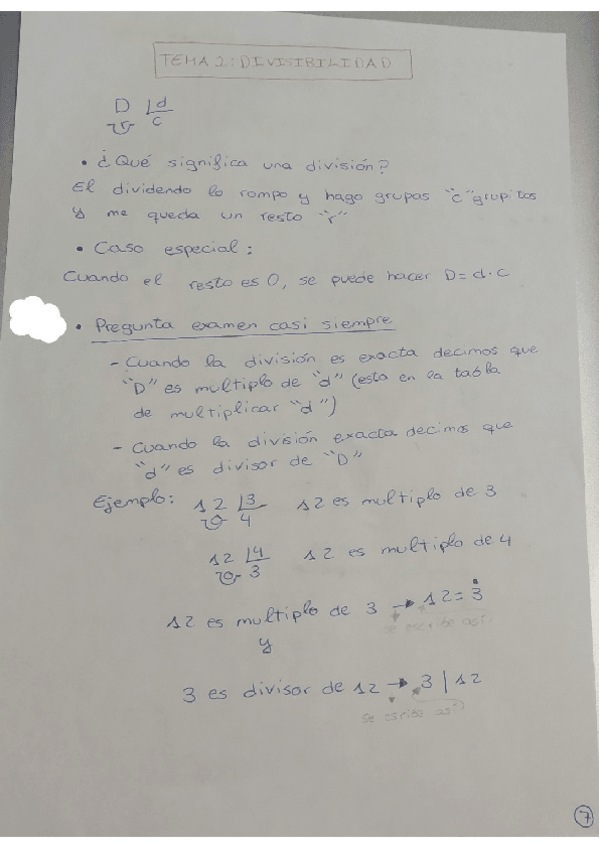 TEMA 2: DIVISIBILIDAD
D |d
r c
• ¿Qué significa una división?
El dividendo lo rompo y hago grupas "c" grupitos
y me queda un resto "r"
• Caso especial:
Cuando el resto es 0, se puede hacer D= d·c
• Pregunta examen casi siempre
- Cuando la división es exacta decimos que
"D" es multiplo de "d" (esto en la tabla
de multiplicar "d")
- Cuando la división exacta decimos que
"d" es divisor de "D"
Ejemplo: 12 |3 12 es multiplo de 3
0 4
12 |4 12 es multiplo de 4
0 3
12 es multiplo de 3 → 12= 3̇
se escribe así
y
3 es divisor de 12 → 3 | 12
se escribe así
7